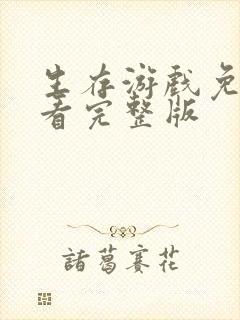 生存游戏免
看完整版
諸葛賽花